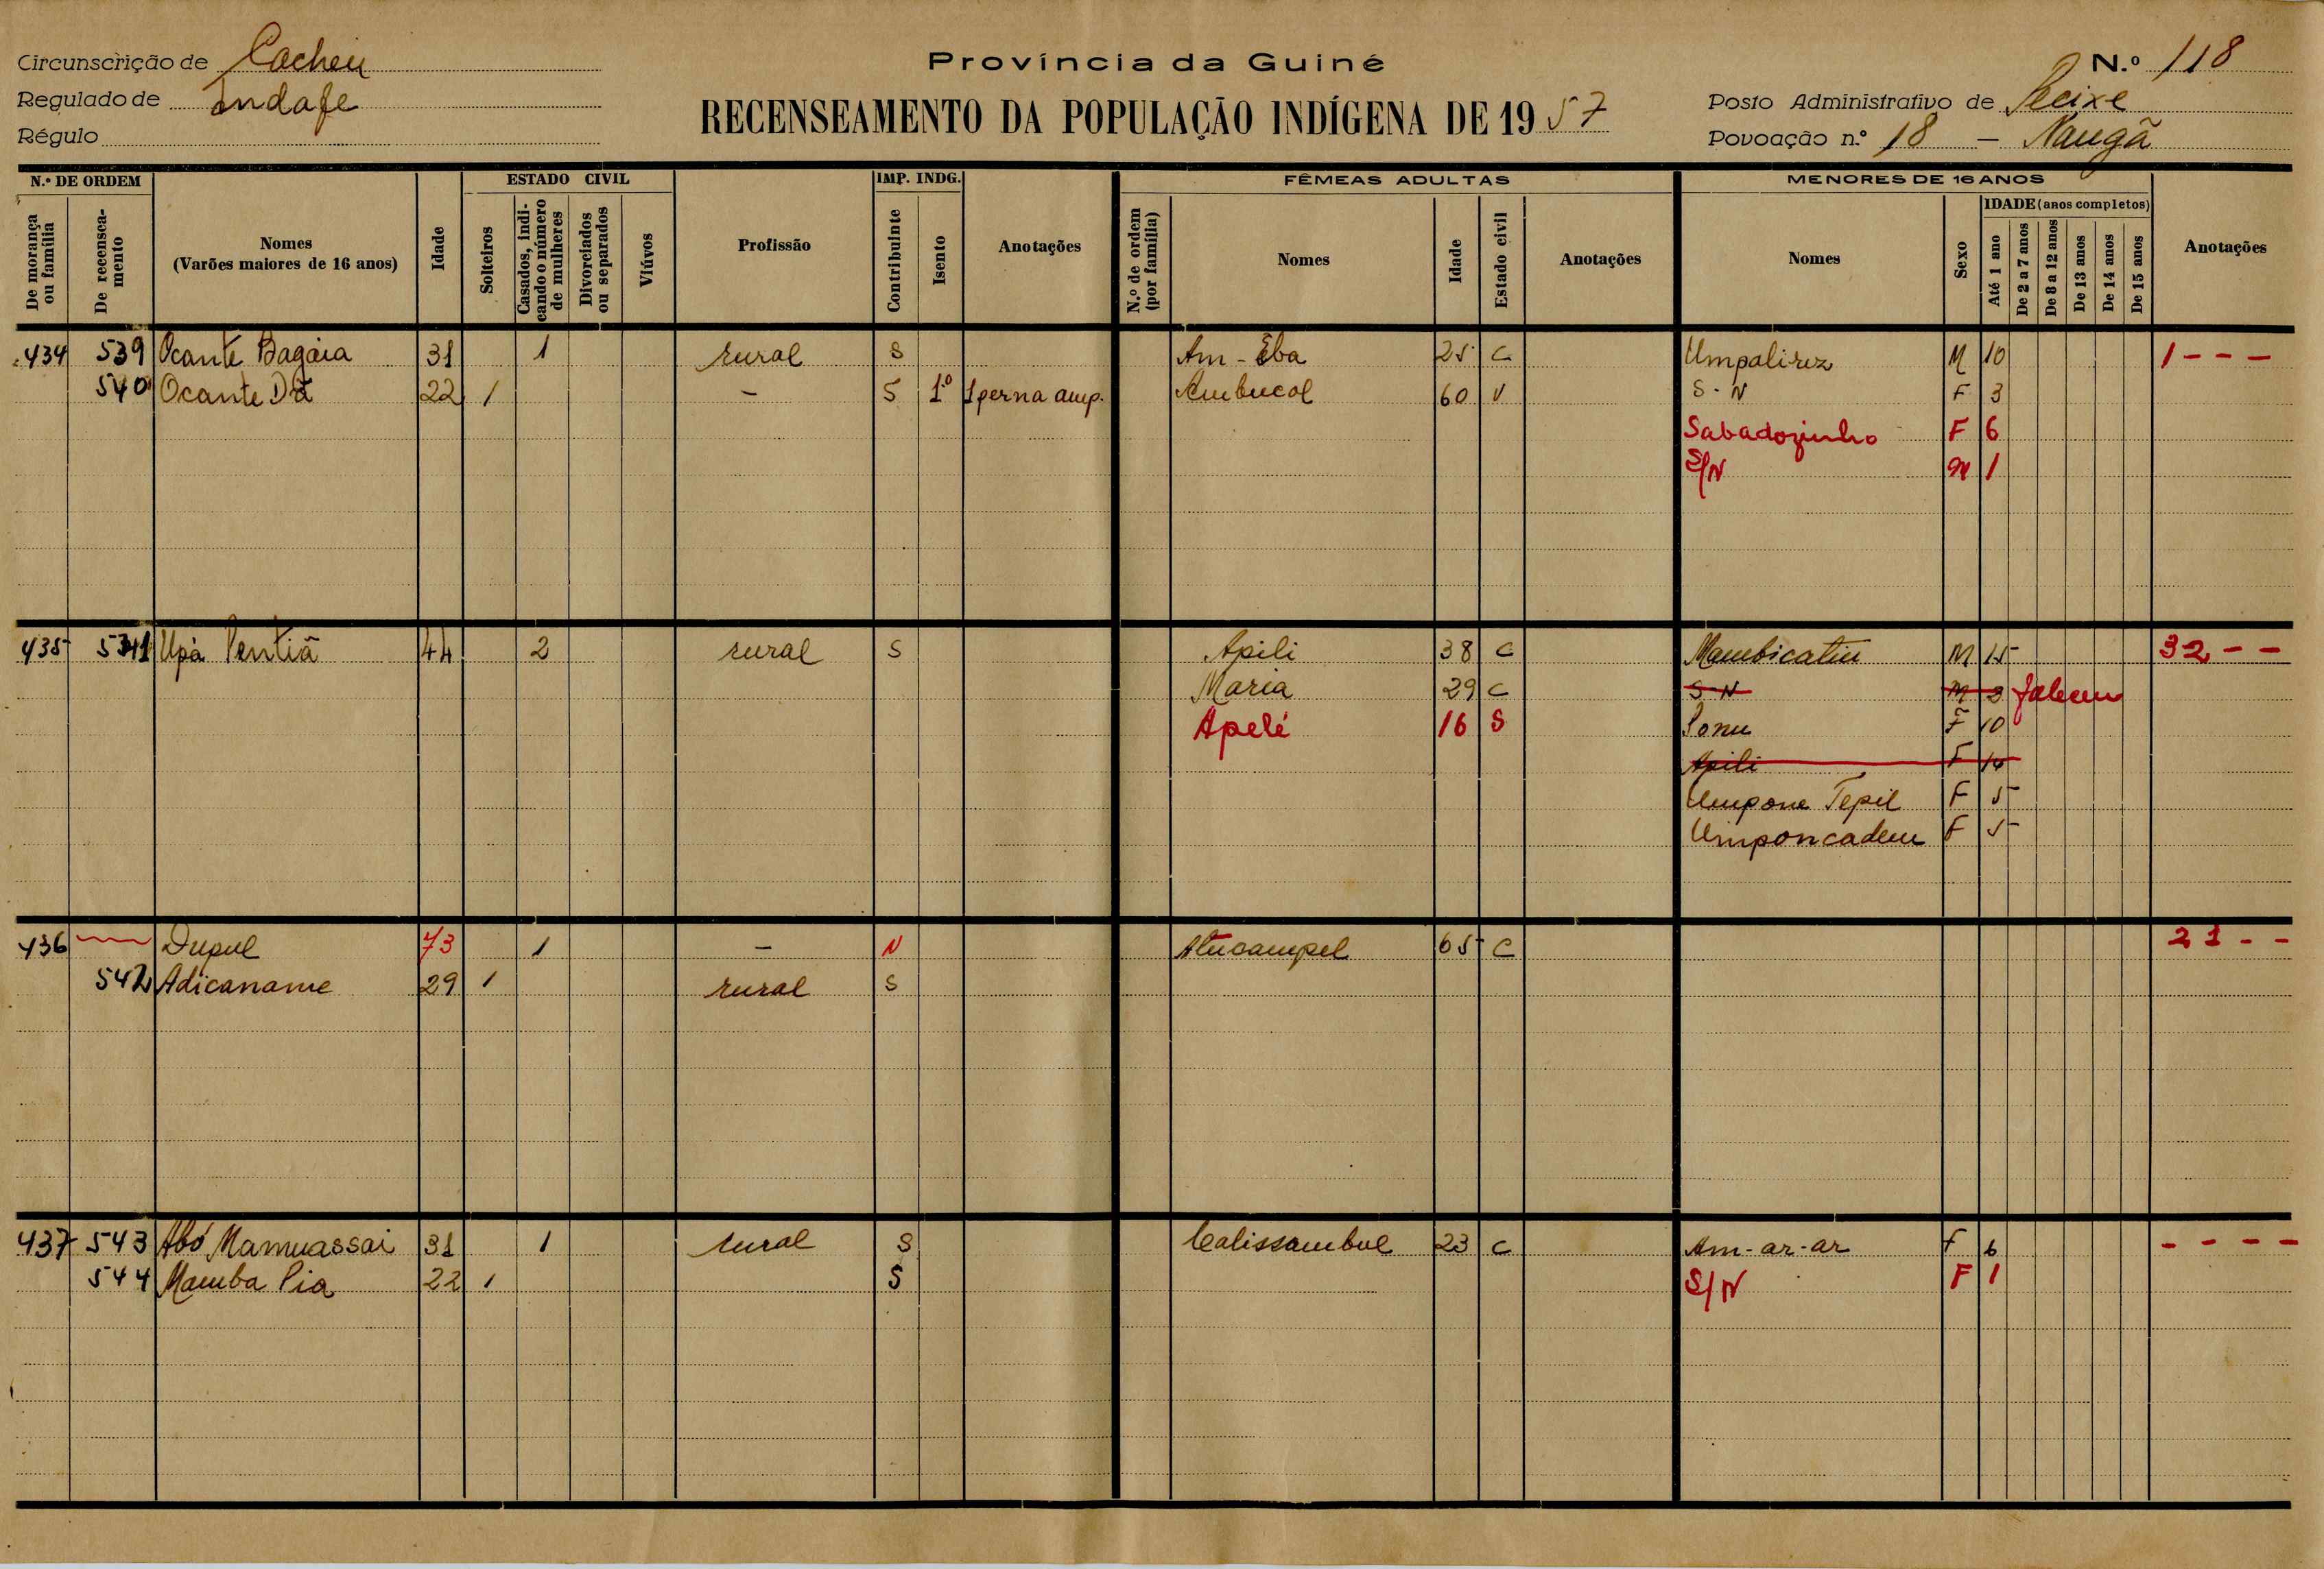 Circunscrição de Cacheu
Regulado de Indafe
Régulo
Província da Guiné
RECENSEAMENTO DA POPULAÇÃO INDÍGENA DE 1957
N.º 118
Posto Administrativo de Pecixe
Povoação n.º 18 - Naugã
N.º DE ORDEM
De morança ou família
De recenseamento
Nomes
(Varões maiores de 16 anos)
Idade
ESTADO CIVIL
Solteiros
Casados, indicando o número de mulheres
Divorciados ou separados
Viúvos
Profissão
IMP. INDG.
Contribuinte
Isento
Anotações
FÊMEAS ADULTAS
N.º de ordem (por família)
Nomes
Idade
Estado civil
Anotações
MENORES DE 16 ANOS
Nomes
Sexo
IDADE (anos completos)
Até 1 ano
De 2 a 7 anos
De 8 a 12 anos
De 13 anos
De 14 anos
De 15 anos
Anotações
434 539 Ocante Bagaia 31 1 rural S Am-Eba 25 C Umpalirez M 10 1 - - -
540 Ocante Dã 22 1 - S 1º 1 perna amp. Ambucol 60 V S-N F 3
Sabadozinho F 6
S/N M 1
435 541 Upà Pentiã 44 2 rural S Apili 38 C Mambicatiu M 15 32 - -
Maria 29 C S-N M 3 faleceu
Apelé 16 S Ponu F 10
Apili F 14
Umpone Tepil F 5
Umponcadem F 5
436 Dupul 73 1 - N Atucampel 65 C 21 - -
542 Adicaname 29 1 rural S
437 543 Abó Mamuassai 31 1 rural S Calissambul 23 C Am-ar-ar F 6 - - - -
544 Mamba Pia 22 1 S S/N F 1